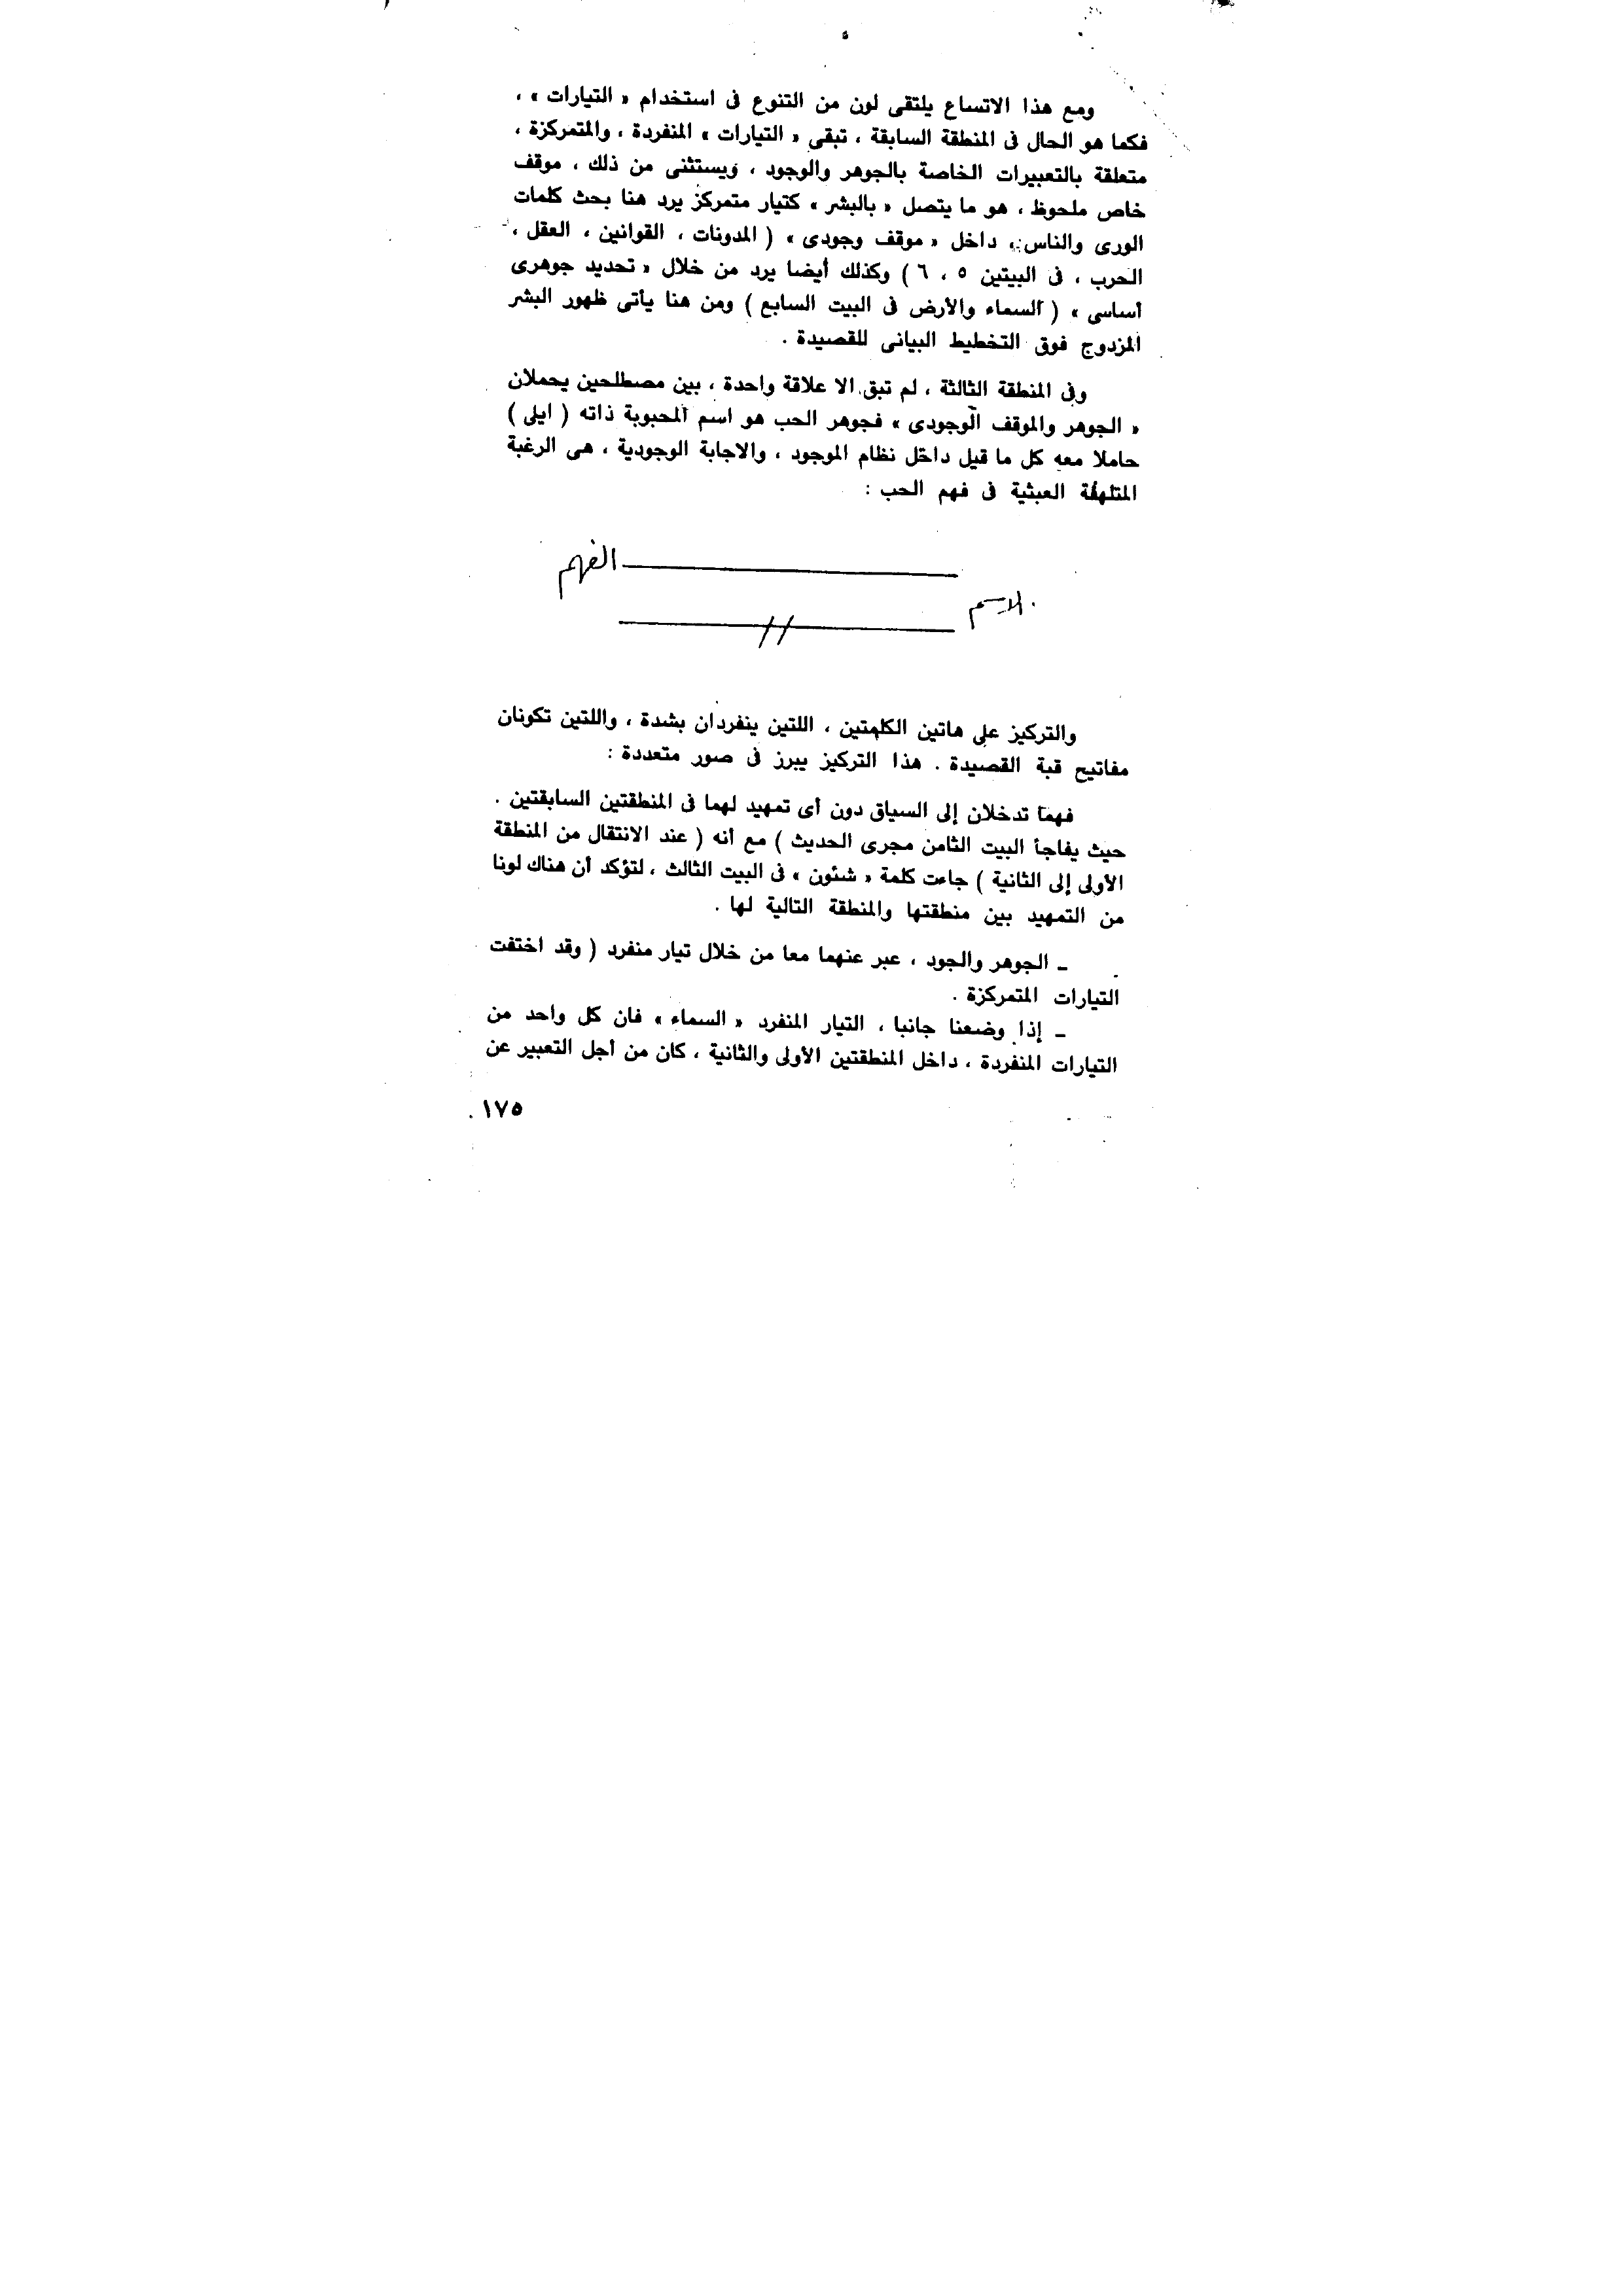 ومع هذا الاتساع يلتقى لون من التنوع فى استخدام « التيارات » ،
فكما هو الحال فى المنطقة السابقة ، تبقى « التيارات » المنفردة ، والمتمركزة ،
متعلقة بالتعبيرات الخاصة بالجوهر والوجود ، ويستثنى من ذلك ، موقف
خاص ملحوظ ، هو ما يتصل « بالبشر » كتيار متمركز يرد هنا بحث كلمات
الورى والناس ، داخل « موقف وجودى » ( المدونات ، القوانين ، العقل ،
الحرب ، فى البيتين ٥ ، ٦ ) وكذلك أيضا يرد من خلال « تحديد جوهرى
أساسى » ( السماء والأرض فى البيت السابع ) ومن هنا يأتى ظهور البشر
المزدوج فوق التخطيط البيانى للقصيدة .
وفى المنطقة الثالثة ، لم تبق الا علاقة واحدة ، بين مصطلحين يحملان
« الجوهر والموقف الوجودى » فجوهر الحب هو اسم المحبوبة ذاته ( ايلى )
حاملا معه كل ما قيل داخل نظام الموجود ، والاجابة الوجودية ، هى الرغبة
المتلهفة العبثية فى فهم الحب :
الفهم
الاسم
والتركيز على هاتين الكلمتين ، اللتين ينفردان بشدة ، واللتين تكونان
مفاتيح قبة القصيدة . هذا التركيز يبرز فى صور متعددة :
فهما تدخلان إلى السياق دون أى تمهيد لهما فى المنطقتين السابقتين .
حيث يفاجأ البيت الثامن مجرى الحديث ) مع أنه ( عند الانتقال من المنطقة
الأولى إلى الثانية ) جاءت كلمة « شئون » فى البيت الثالث ، لتؤكد أن هناك لونا
من التمهيد بين منطقتها والمنطقة التالية لها .
ـ الجوهر والجود ، عبر عنهما معا من خلال تيار منفرد ( وقد اختفت
التيارات المتمركزة .
ـ إذا وضعنا جانبا ، التيار المنفرد « السماء » فان كل واحد من
التيارات المنفردة ، داخل المنطقتين الأولى والثانية ، كان من أجل التعبير عن
١٧٥